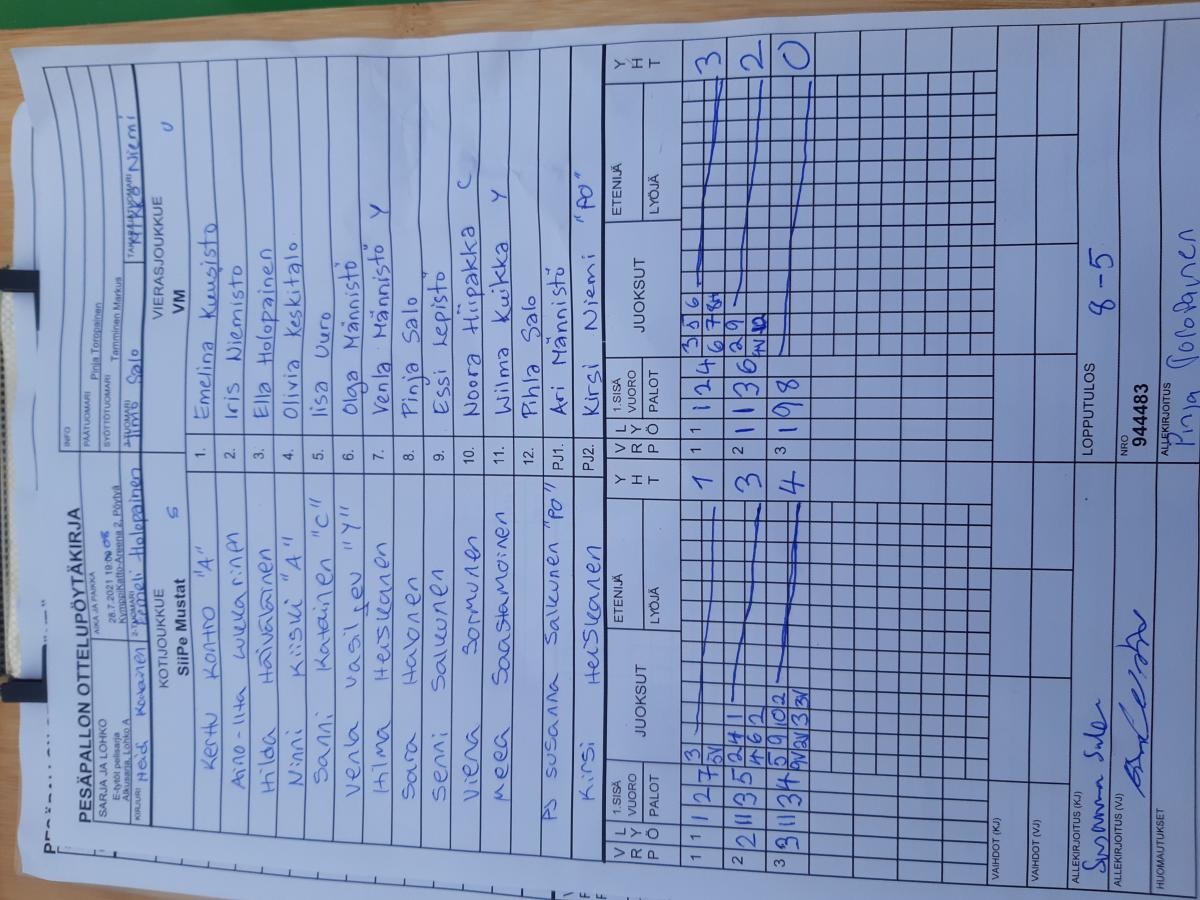 PESÄPALLON OTTELUPÖYTÄKIRJA
INFO
SARJA JA LOHKO
E-tytöt pelisarja
Alkusarja, Lohko A
AIKA JA PAIKKA
28.7.2021 19:00
KymppiKatto-Areena 2, Pöytyä
PÄÄTUOMARI Pinja Toropainen
SYÖTTÖTUOMARI Tamminen Markus
KIRJURI Heidi
2-TUOMARI Eemeli Holopainen
3-TUOMARI Timo Salo
TAKARAJATUOMARI Mikko Niemi
KOTIJOUKKUE S
SiiPe Mustat
VIERASJOUKKUE U
VM
Kerttu Kontro "A" 1. Emelina Kuusisto
Aino-Iita 2. Iris Niemistö
Hilda Häiväläinen 3. Ella Holopainen
Ninni Kiiski "A" 4. Olivia Keskitalo
Sanni Katainen "C" 5. Iisa Uuro
Venla Vasiljev "Y" 6. Olga Männistö
Hilma Heiskanen 7. Venla Männistö Y
Sara Halonen 8. Pinja Salo
Senni Salkunen 9. Essi Lepistö
Viena Sormunen 10. Noora Hiipakka C
Meea Saastamoinen 11. Wilma Kuikka Y
12. Pihla Salo
PJ Susanna Salkunen "PO" PJ1. Ari Männistö
Kirsi Heiskanen PJ2. Kirsi Niemi "PO"
V R P L Y Ö 1.SISÄ VUORO PALOT JUOKSUT ETENIJÄ LYÖJÄ Y H T V R P L Y Ö 1.SISÄ VUORO PALOT JUOKSUT ETENIJÄ LYÖJÄ Y H T
1 1 1 2 7 3 1 1 1 1 2 4 3 5 6 3
5V 6 7 8H
2 2 11 3 5 2 4 1 3 2 1 1 3 6 2 9 2
4 6 2
3 3 11 3 4 5 9 10 2 4 3 1 9 8 0
9V 2V 3 3V
VAIHDOT (KJ)
VAIHDOT (VJ)
ALLEKIRJOITUS (KJ)
Susanna
LOPPUTULOS 8-5
ALLEKIRJOITUS (VJ)
NRO
944483
HUOMAUTUKSET
ALLEKIRJOITUS
Pinja Toropainen